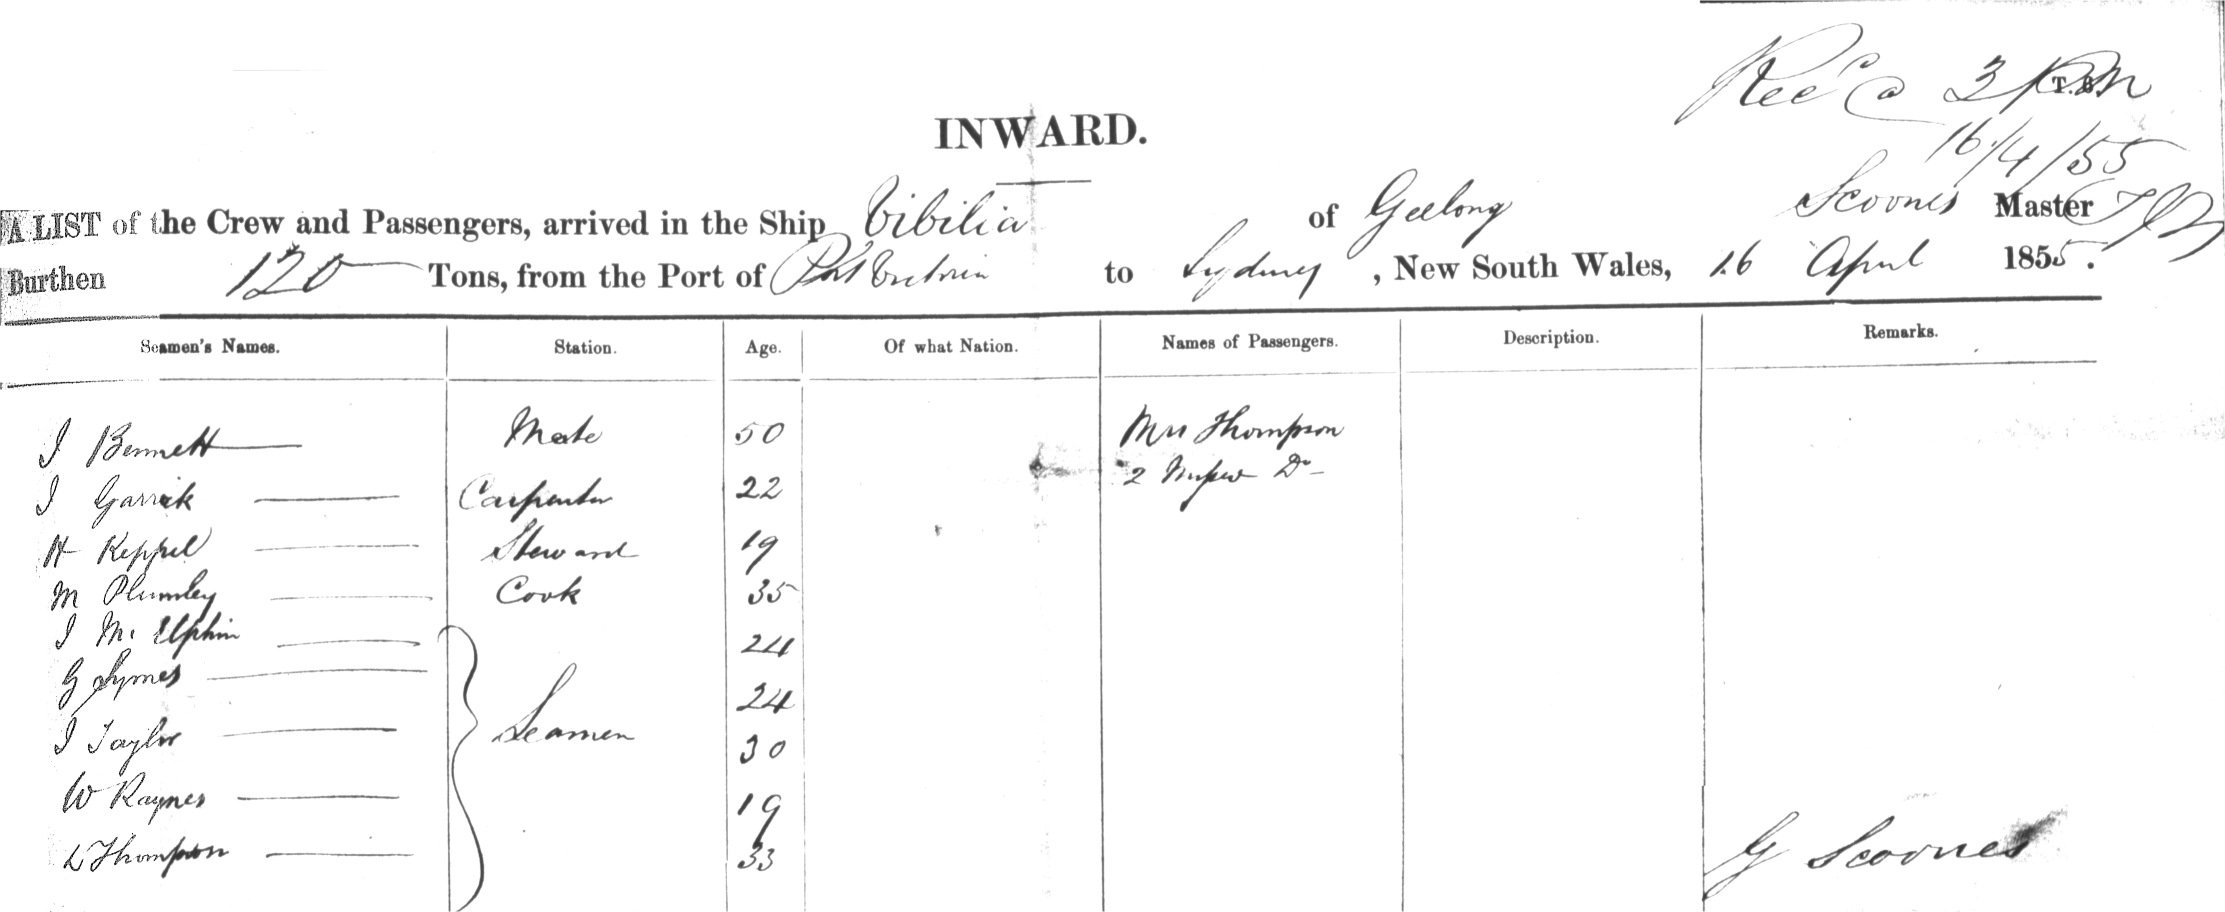 Recd 3 PM
T.B.
16/4/55
INWARD.
A LIST of the Crew and Passengers, arrived in the Ship Vibilia of Geelong Scoones Master
Burthen 120 Tons, from the Port of Port Victoria to Sydney, New South Wales, 16 April 1855.
Seamen's Names. Station. Age. Of what Nation. Names of Passengers. Description. Remarks.
J Bennett Mate 50 Mrs Thompson
J Garrick Carpenter 22 2 Misses Do
H Keppel Steward 19
M Plumley Cook 35
J Mc Elphin 24
G Symes 24
J Taylor Seamen 30
W Raynes 19
L Thompson 33
G Scoones